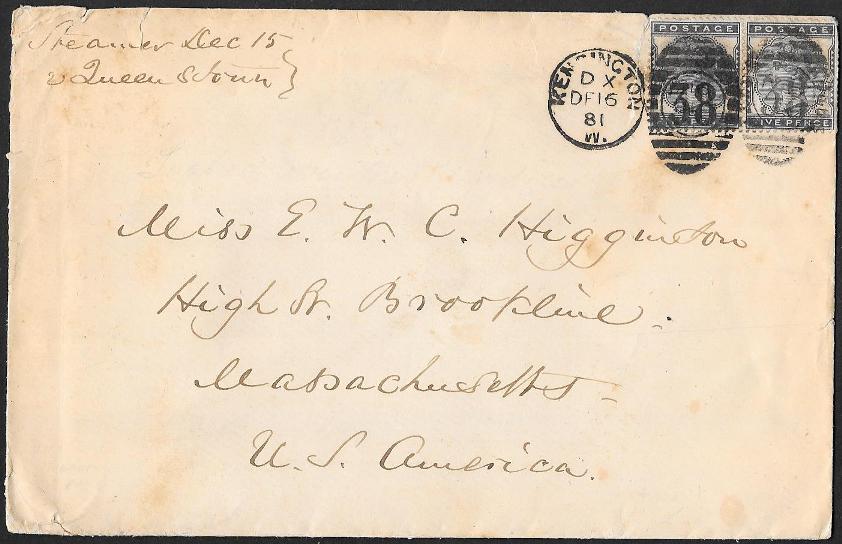 Steamer Dec 15
v Queenstown
KENSINGTON
D X
DE 16
81
W.
POSTAGE
POSTAGE
38
FIVE PENCE
Miss E. W. C. Higginson
High St. Brookline.
Massachusetts
U. S. America.